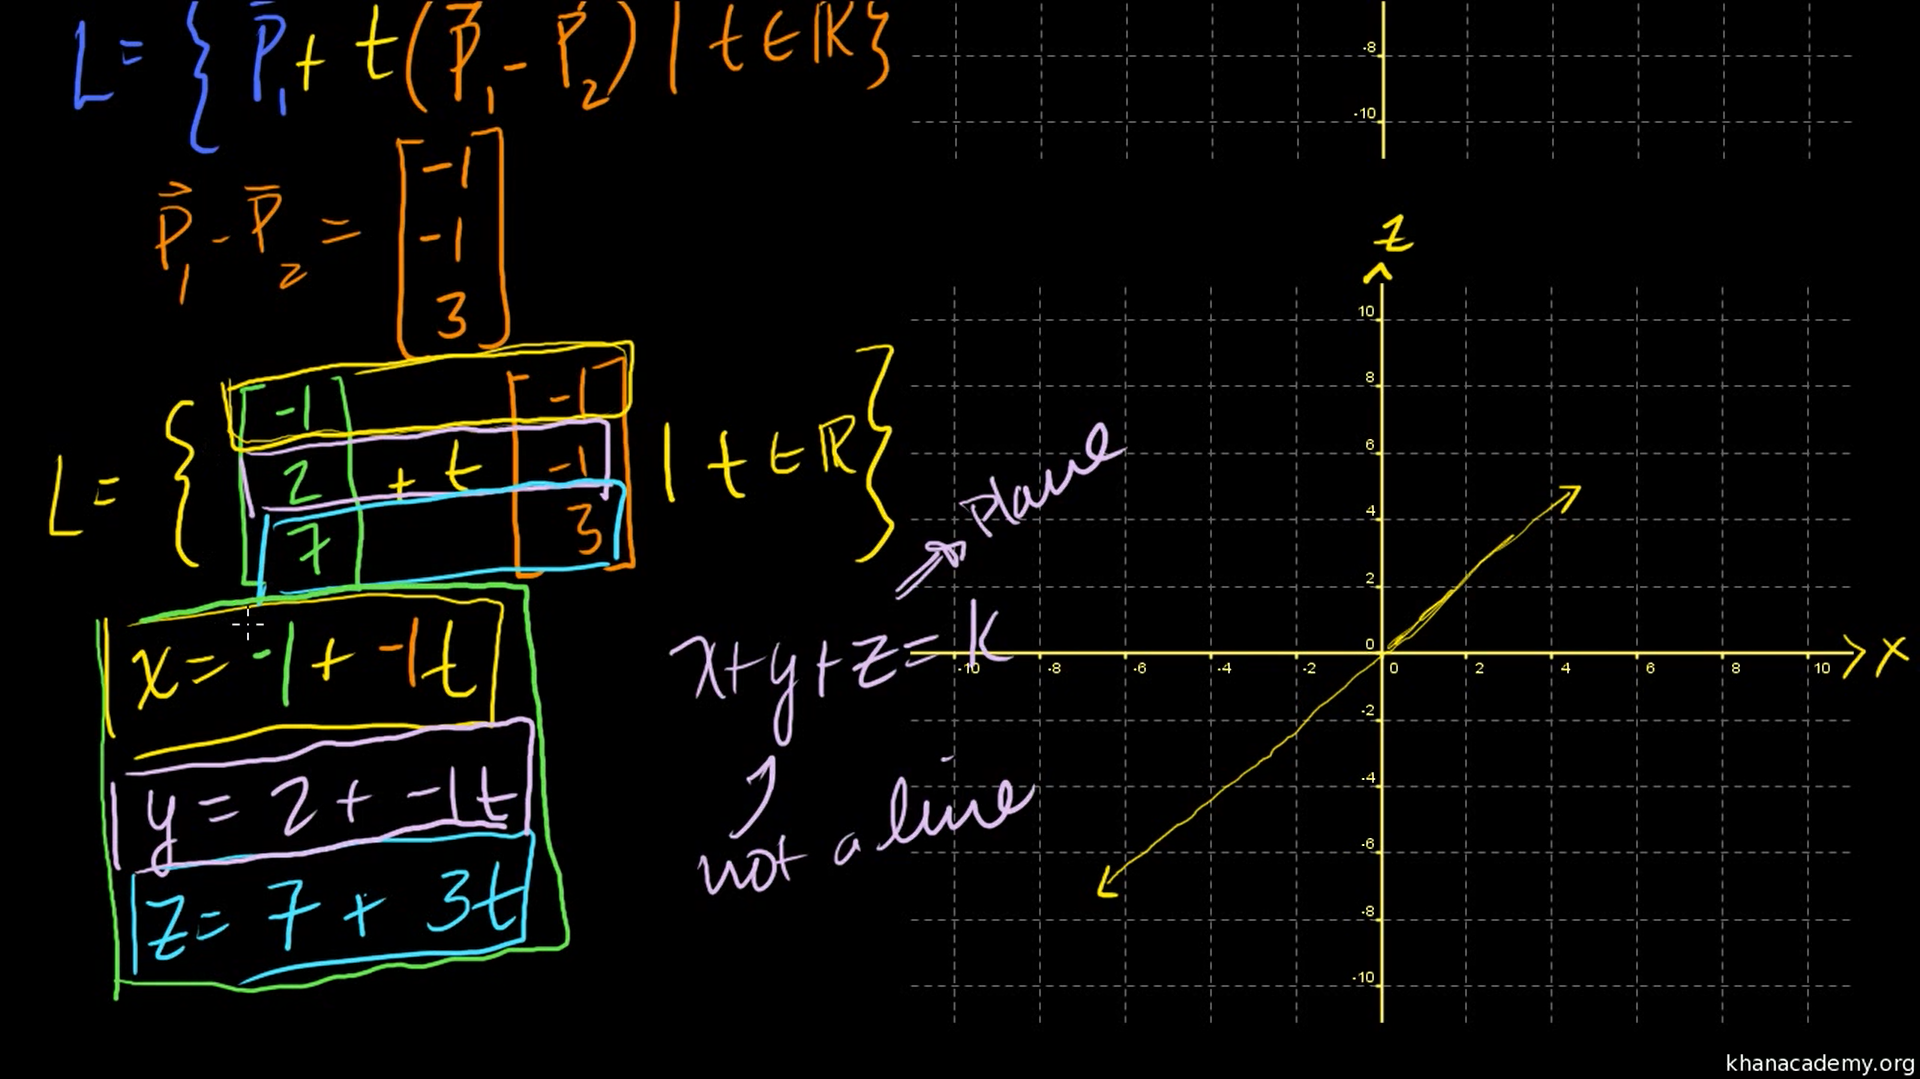 L = { P⃗₁ + t(P⃗₁ - P⃗₂) | t ∈ ℝ}
P⃗₁ - P⃗₂ = [-1
-1
3]
L = { [-1 2 7] + t [-1 -1 3] | t ∈ ℝ}
x = -1 + -1t
y = 2 + -1t
z = 7 + 3t
plane
x+y+z = k
not a line
-8
-10
z
10
8
6
4
2
0
-10 -8 -6 -4 -2 0 2 4 6 8 10 x
-2
-4
-6
-8
-10
khanacademy.org